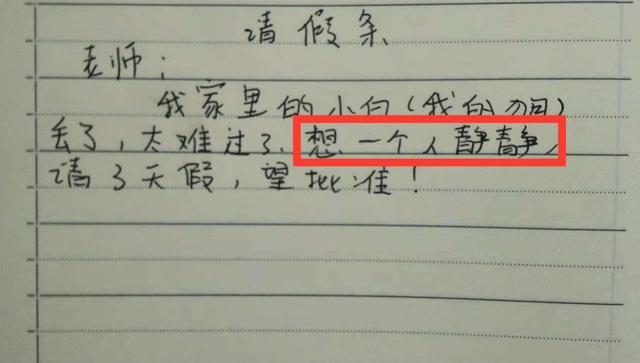 请假条
老师:
我家里的小白(我的狗)
丢了,太难过了、想一个人静静,
请3天假,望批准!